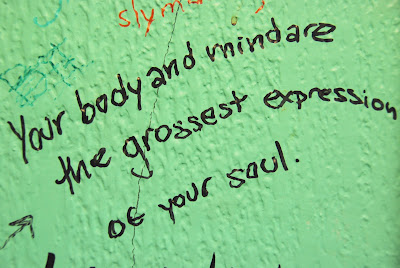 Your body and mind are
the grossest expression
of your soul.